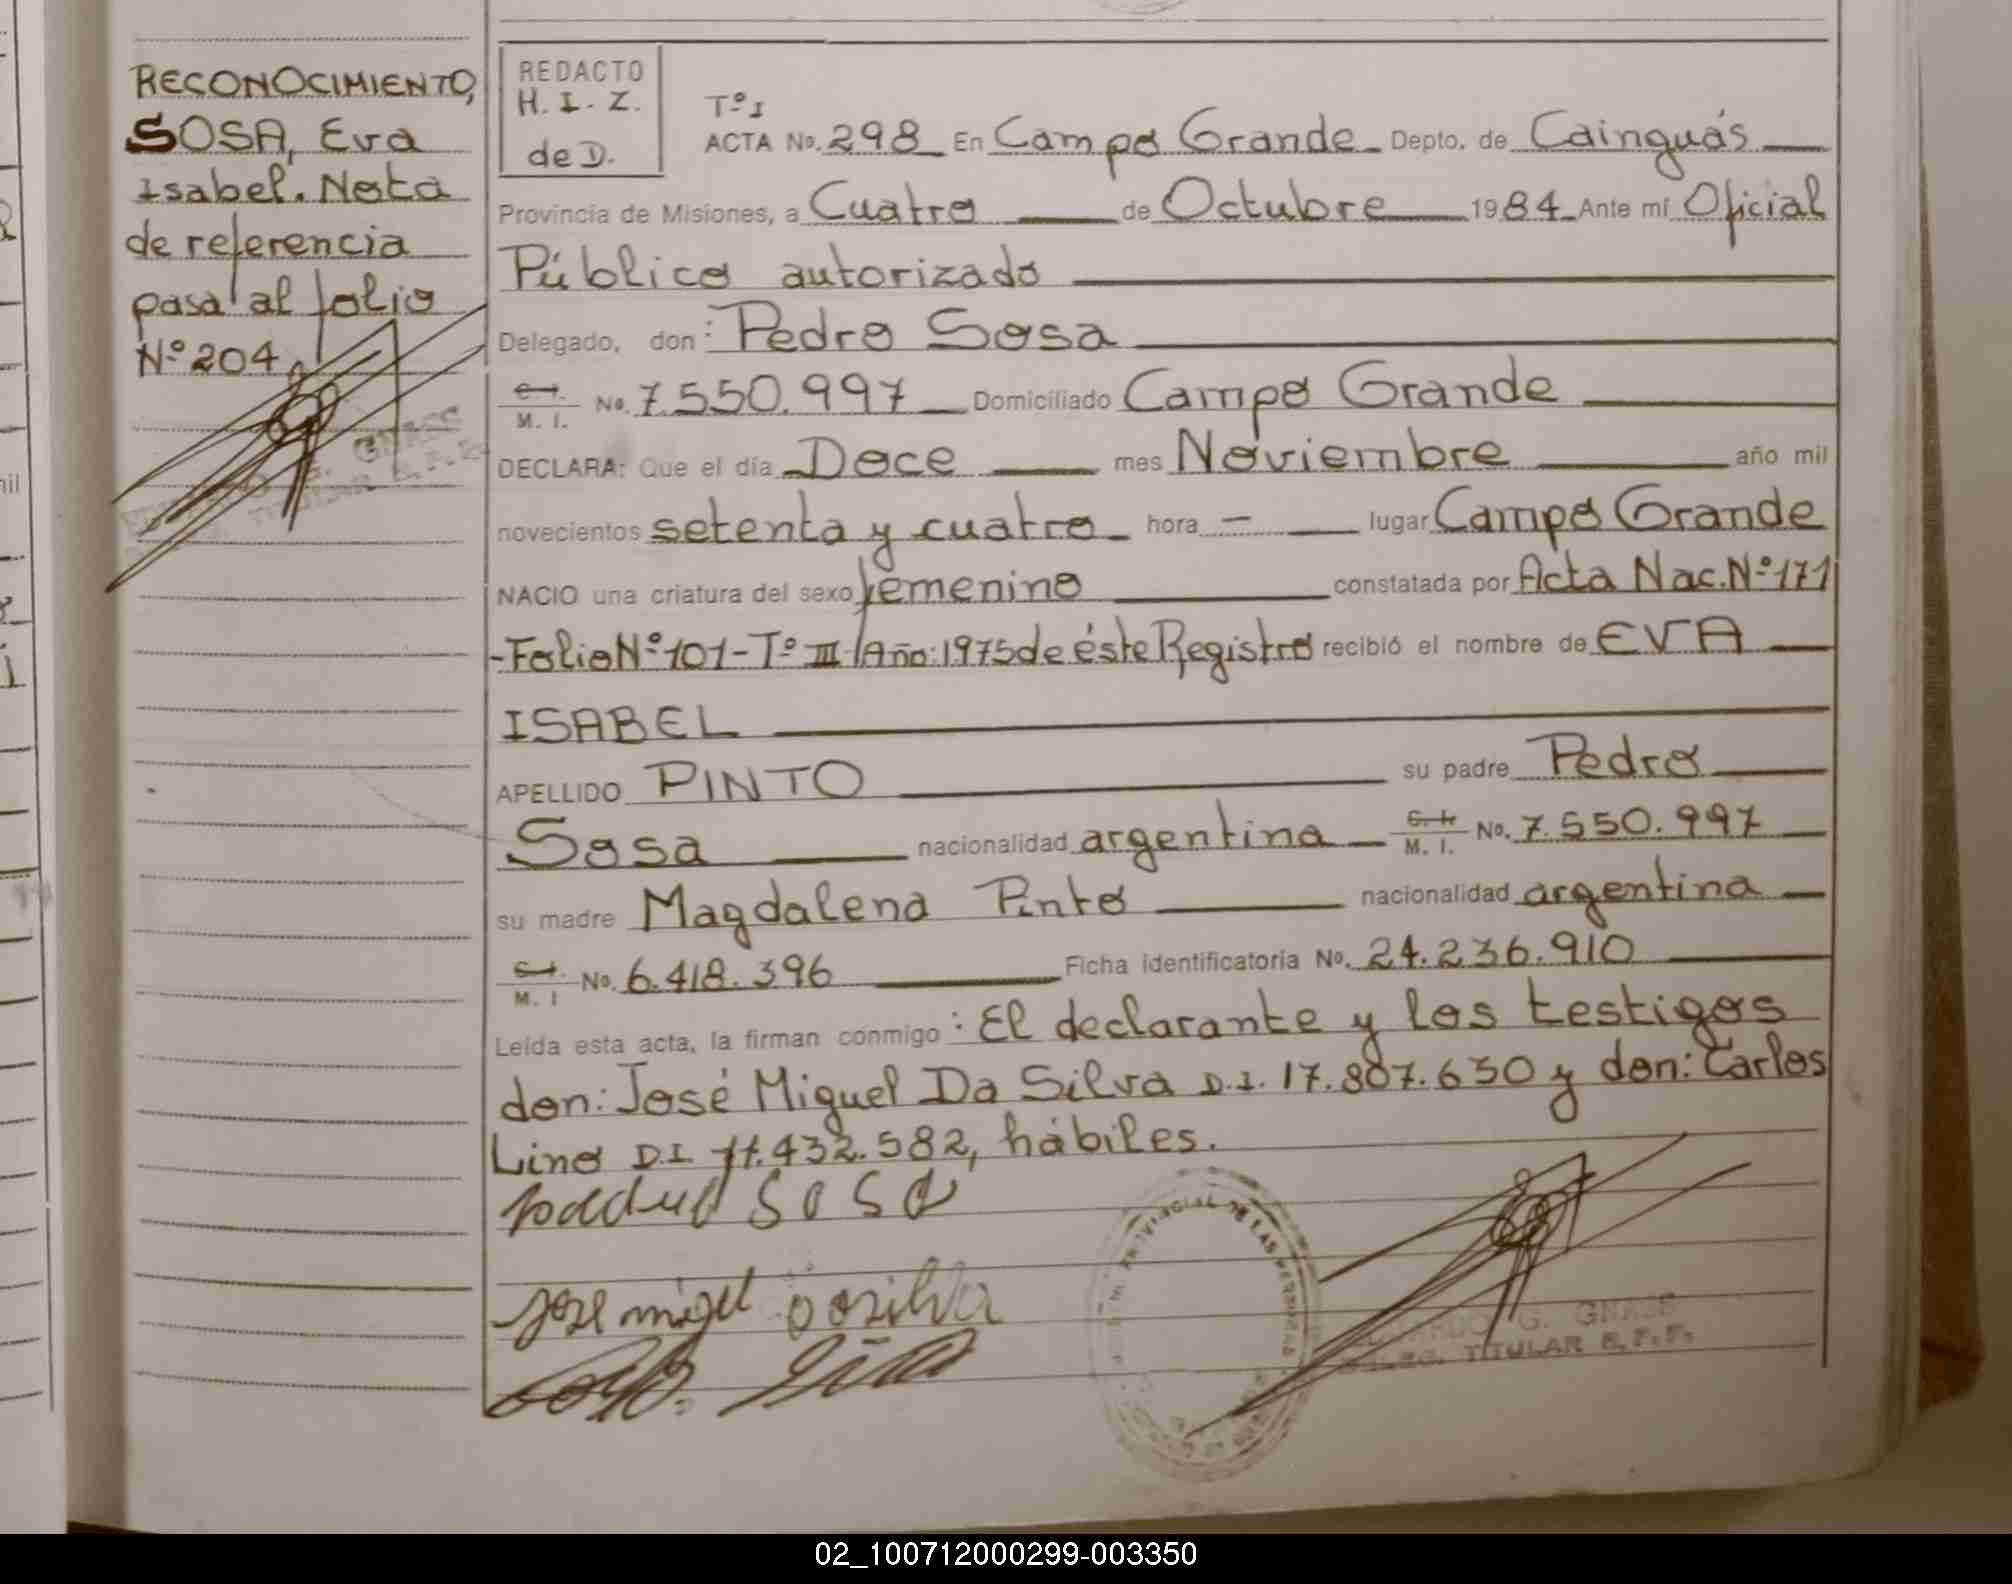 RECONOCIMIENTO,
SOSA, Eva
Isabel. Nota
de referencia
pasa al folio
Nº 204
G. GNASS
TITULAR
REDACTO
H. I. Z.
de D.
Tº I
ACTA No. 298 En Campo Grande Depto. de Cainguás
Provincia de Misiones, a Cuatro de Octubre 1984 Ante mí Oficial
Público autorizado
Delegado, don: Pedro Sosa
C.I. M. I. No. 7.550.997 Domiciliado Campo Grande
DECLARA: Que el día Doce mes Noviembre año mil
novecientos setenta y cuatro hora - lugar Campo Grande
NACIO una criatura del sexo femenino constatada por Acta Nac. Nº 171
-Folio Nº 101 - Tº III / Año: 1975 de éste Registro recibió el nombre de EVA
ISABEL
APELLIDO PINTO su padre Pedro
Sosa nacionalidad argentina C.I. M. I. No. 7.550.997
su madre Magdalena Pinto nacionalidad argentina
C.I. M. I No. 6.418.396 Ficha identificatoria No. 24.236.910
Leída esta acta, la firman conmigo: El declarante y los testigos
don: José Miguel Da Silva D.I. 17.807.630 y don: Carlos
Lino D.I. 11.432.582, hábiles.
Sosa
Jose migel
G. GNASS
TITULAR R.P.P.
02_100712000299-003350